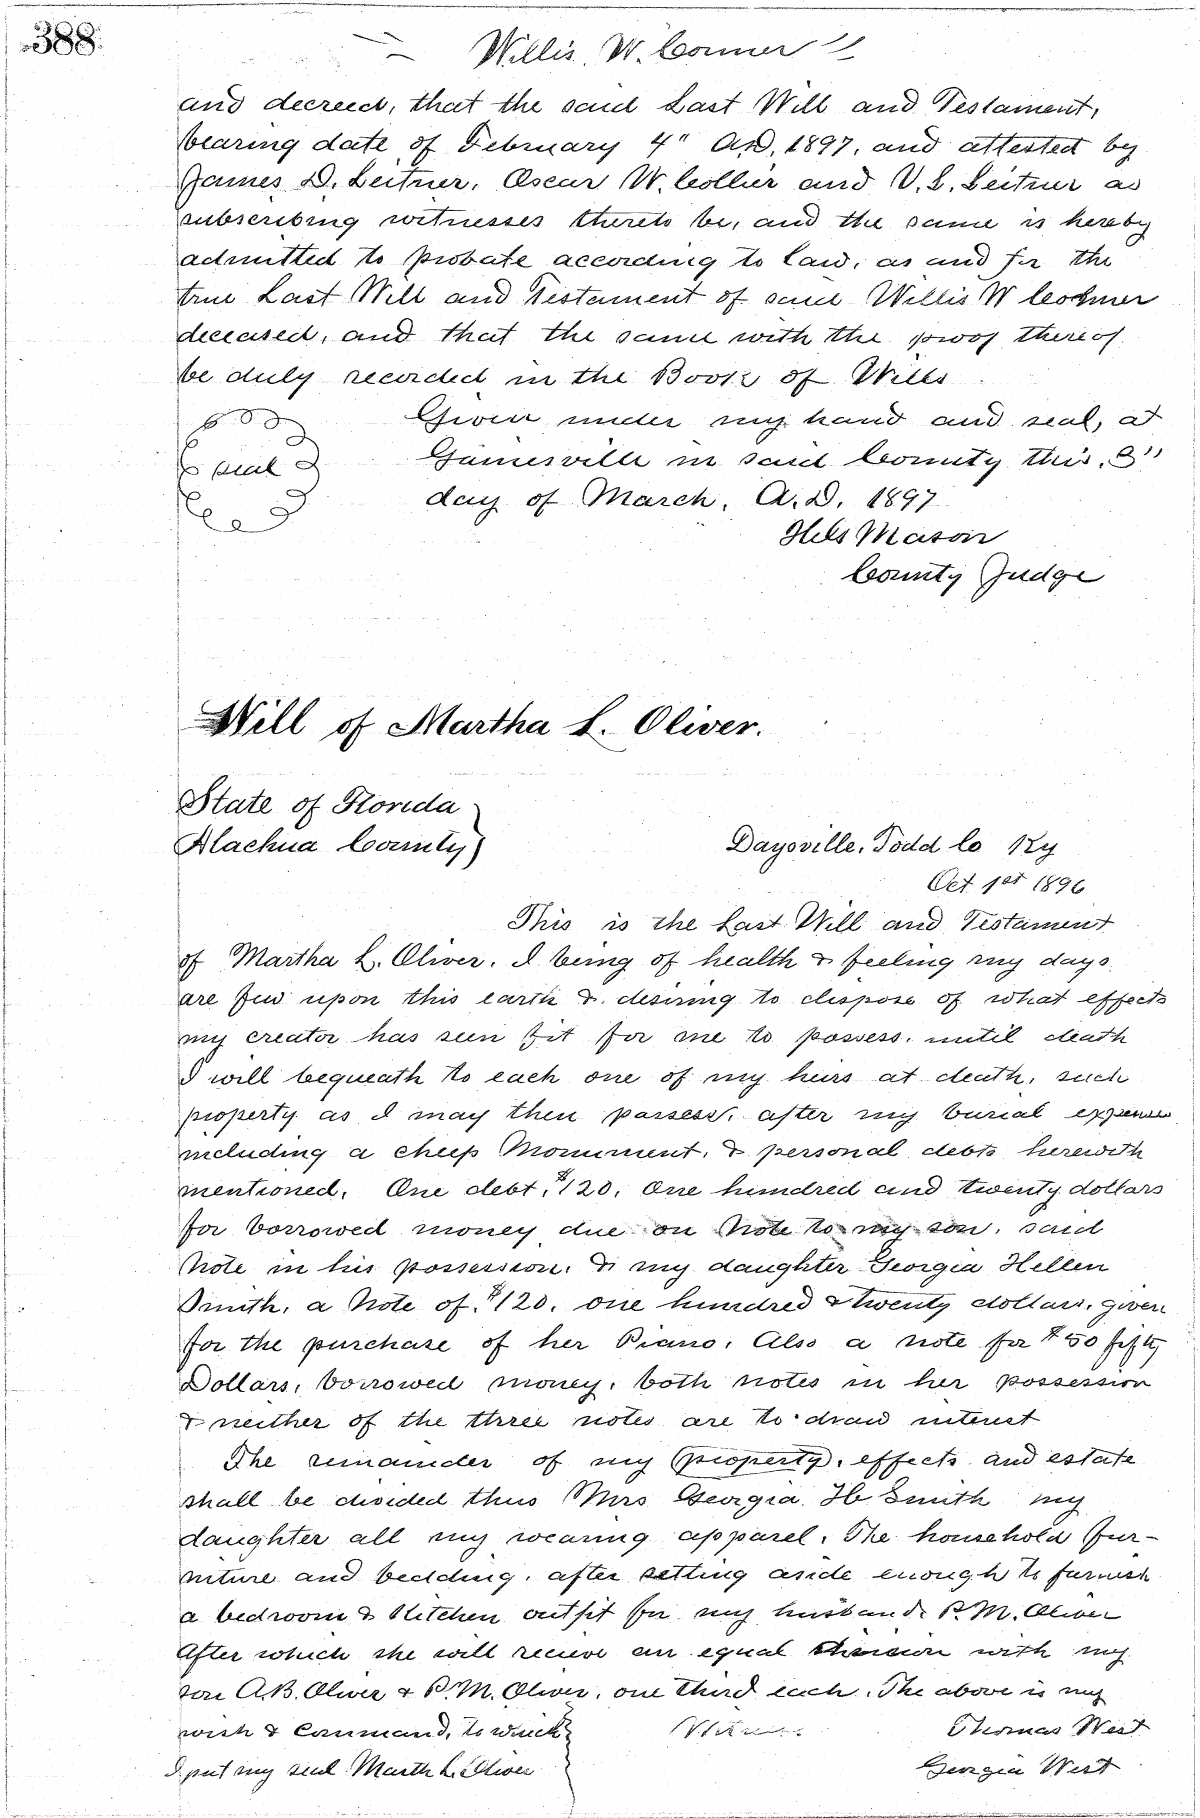 388
Willis. W. Conner
and decreed, that the said Last Will and Testament,
bearing date of February 4" A.D. 1897, and attested by
James D. Leitner, Oscar W. Collier and V. L. Leitner as
subscribing witnesses thereto be, and the same is hereby
admitted to probate according to law, as and for the
true Last Will and Testament of said Willis W
deceased, and that the same with the proof thereof
be duly recorded in the Book of Wills
Given under my hand and seal, at
seal
Gainesville in said County this, 3"
day of March, A.D. 1897
Mason
County Judge
Will of Martha L. Oliver.
State of Florida
Alachua County
Daysville, Todd Co Ky
Oct 1st 1896
This is the Last Will and Testament
of Martha L. Oliver. I being of health & feeling my days
are few upon this earth & desiring to dispose of what effects
my creator has seen fit for me to possess. until death
I will bequeath to each one of my heirs at death, such
property as I may then possess, after my burial expenses
including a cheep Monument, & personal debts herewith
mentioned. One debt, $120. One hundred and twenty dollars
for borrowed money due on Note to my son. said
Note in his possession. & my daughter Georgia Hellen
Smith, a Note of $120. one hundred & twenty dollars, given
for the purchase of her Piano. Also a note for $50 fifty
Dollars, borrowed money, both notes in her possession
& neither of the three notes are to draw interest
The remainder of my (property), effects and estate
shall be divided thus Mrs Georgia H Smith my
daughter all my wearing apparel. The household fur-
niture and bedding, after setting aside enough to furnish
a bedroom & Kitchen outfit for my husband. P. M. Oliver
After which she will recieve an equal division with my
son A.B. Oliver & P. M. Oliver, one third each. The above is my
wish & Command, to which Thomas West
I put my seal Marth L. Oliver Georgia West